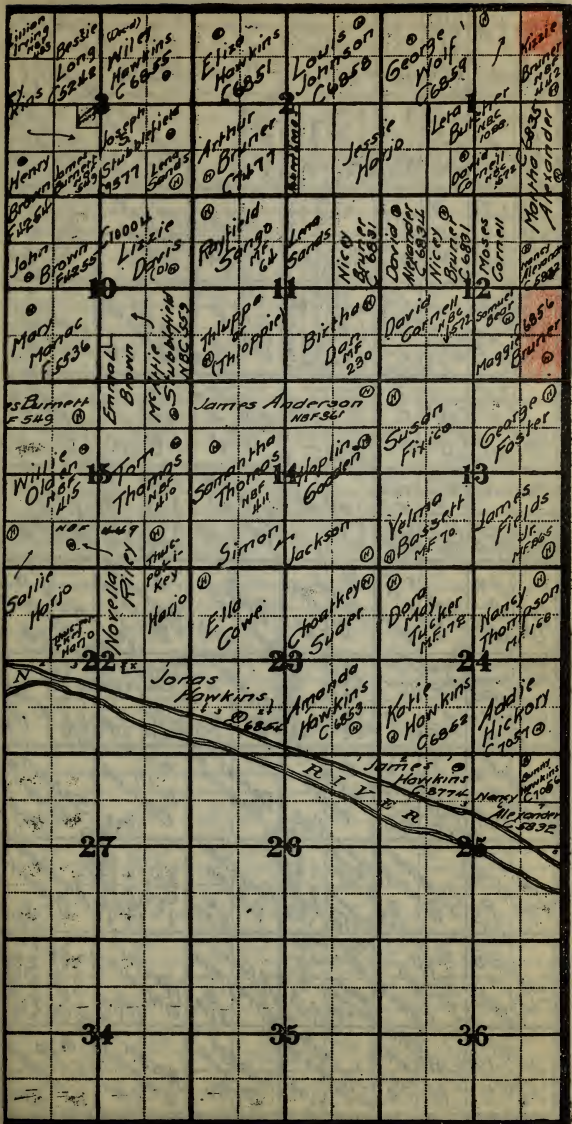 Lillian
Irving
Bessie
Long
C 5242
(Dec'd)
Wiley
Hawkins
C 6855
Eliza
Hawkins
C 6851
Louis
Johnson
C 6858
George
Wolf
C 6859
Kizzie
Bruner
3
2
1
Joseph
Stubblefield
7377
Lena
Sands
Henry
Brown
F 4254
James
Burnett
Arthur
Bruner
Jessie
Harjo
Lena
Butcher
NBC
David
Cornell
NBC
572
C 6835
Martha
Alexander
John
Brown
F 4255
C 10004
Lizzie
Davis
Rayfield
Sango
MF
64
Lena
Sands
Nicey
Bruner
C 6831
David
Alexander
C 6834
Nicey
Bruner
C 6831
Moses
Cornell
Nancy
Alexander
5832
10
11
12
Mary
Manac
F 5536
Emma L.
Brown
McKittie
Stubblefield
NBC 559
Thluppa
or
(Thloppie)
Birtha
Dan
MF
230
David
Cornell
NBC
572
Samuel
Bear
Maggie
Bruner
6856
es Burnett
F 549
James Anderson
NBF 361
Susan
Fixico
George
Foster
Willie
Olden
NBF
415
Tom
Thomas
NBF
410
Samantha
Thomas
NBF
411
Hoplin
Gooden
15
14
13
Simon Jackson
Velma
Bassett
MF 70
James
Fields
Jr.
MF 865
NBF
449
Sallie
Harjo
Novella
Riley
Harjo
Ella
Cowe
Choatkey
Suder
Dora
May
Tucker
MF 172
Nancy
Thompson
MF 168
22
23
24
N
Jonas
Hawkins
6854
Amanda
Hawkins
C 6853
Katie
Hawkins
C 6852
Addie
Hickory
C 7057
RIVER
James
Hawkins
C 8774
Bunny
Hawkins
C 7056
Nancy
Alexander
C 5832
27
26
25
34
35
36